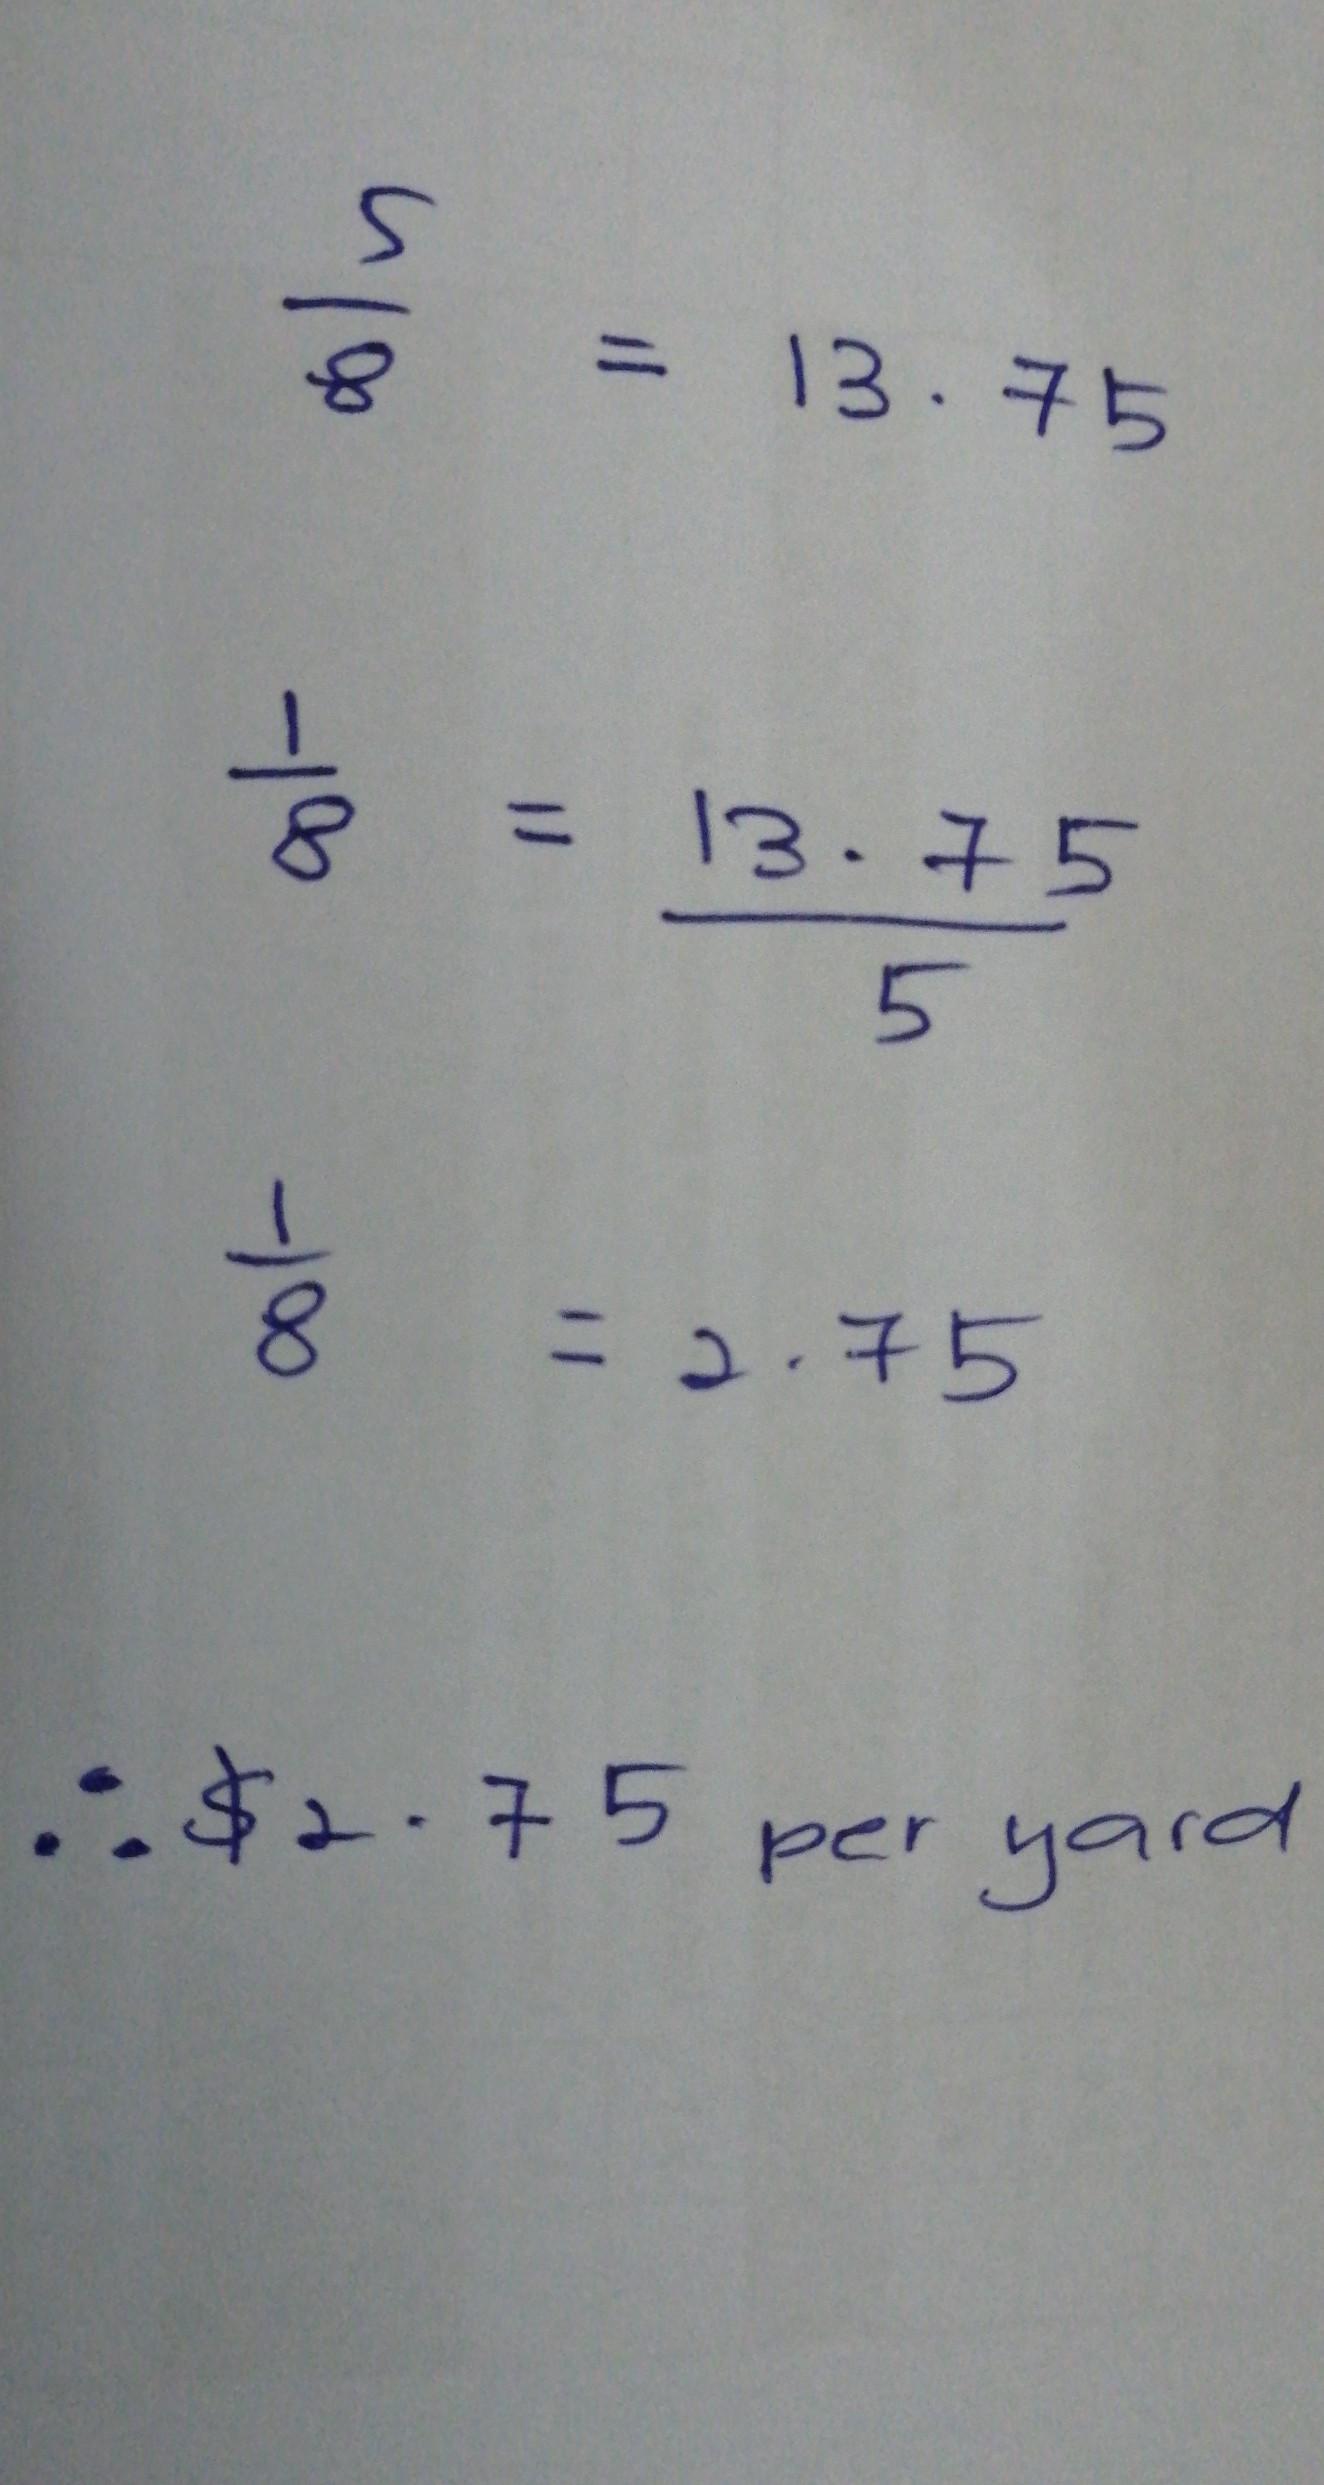 5/8 = 13.75
1/8 = 13.75/5
1/8 = 2.75
∴ $2.75 per yard